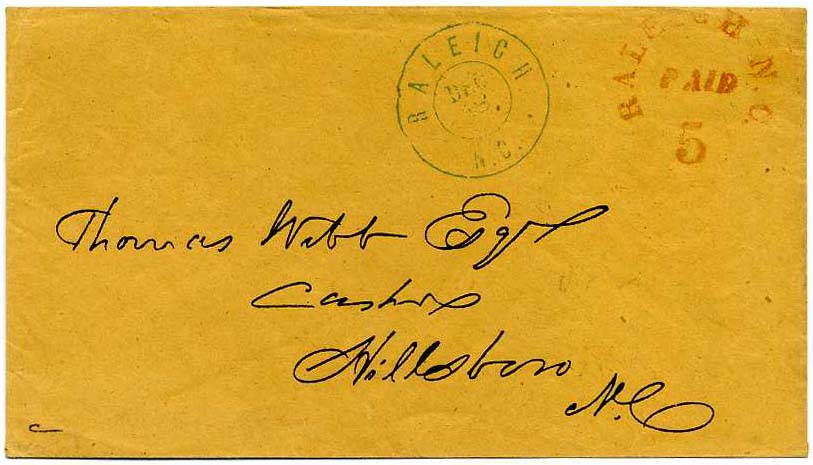 RALEIGH
DEC
N.C.
RALEIGH N.C.
PAID
5
Thomas Webb Esqr
Cashr
Hillsboro
N.C